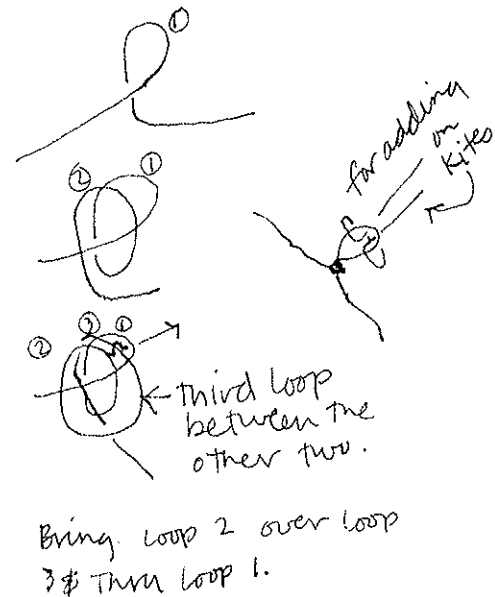 ①
② ①
for adding
on
kites
② ③ ①
third loop
between the
other two.
Bring loop 2 over loop
3 & Thru loop 1.